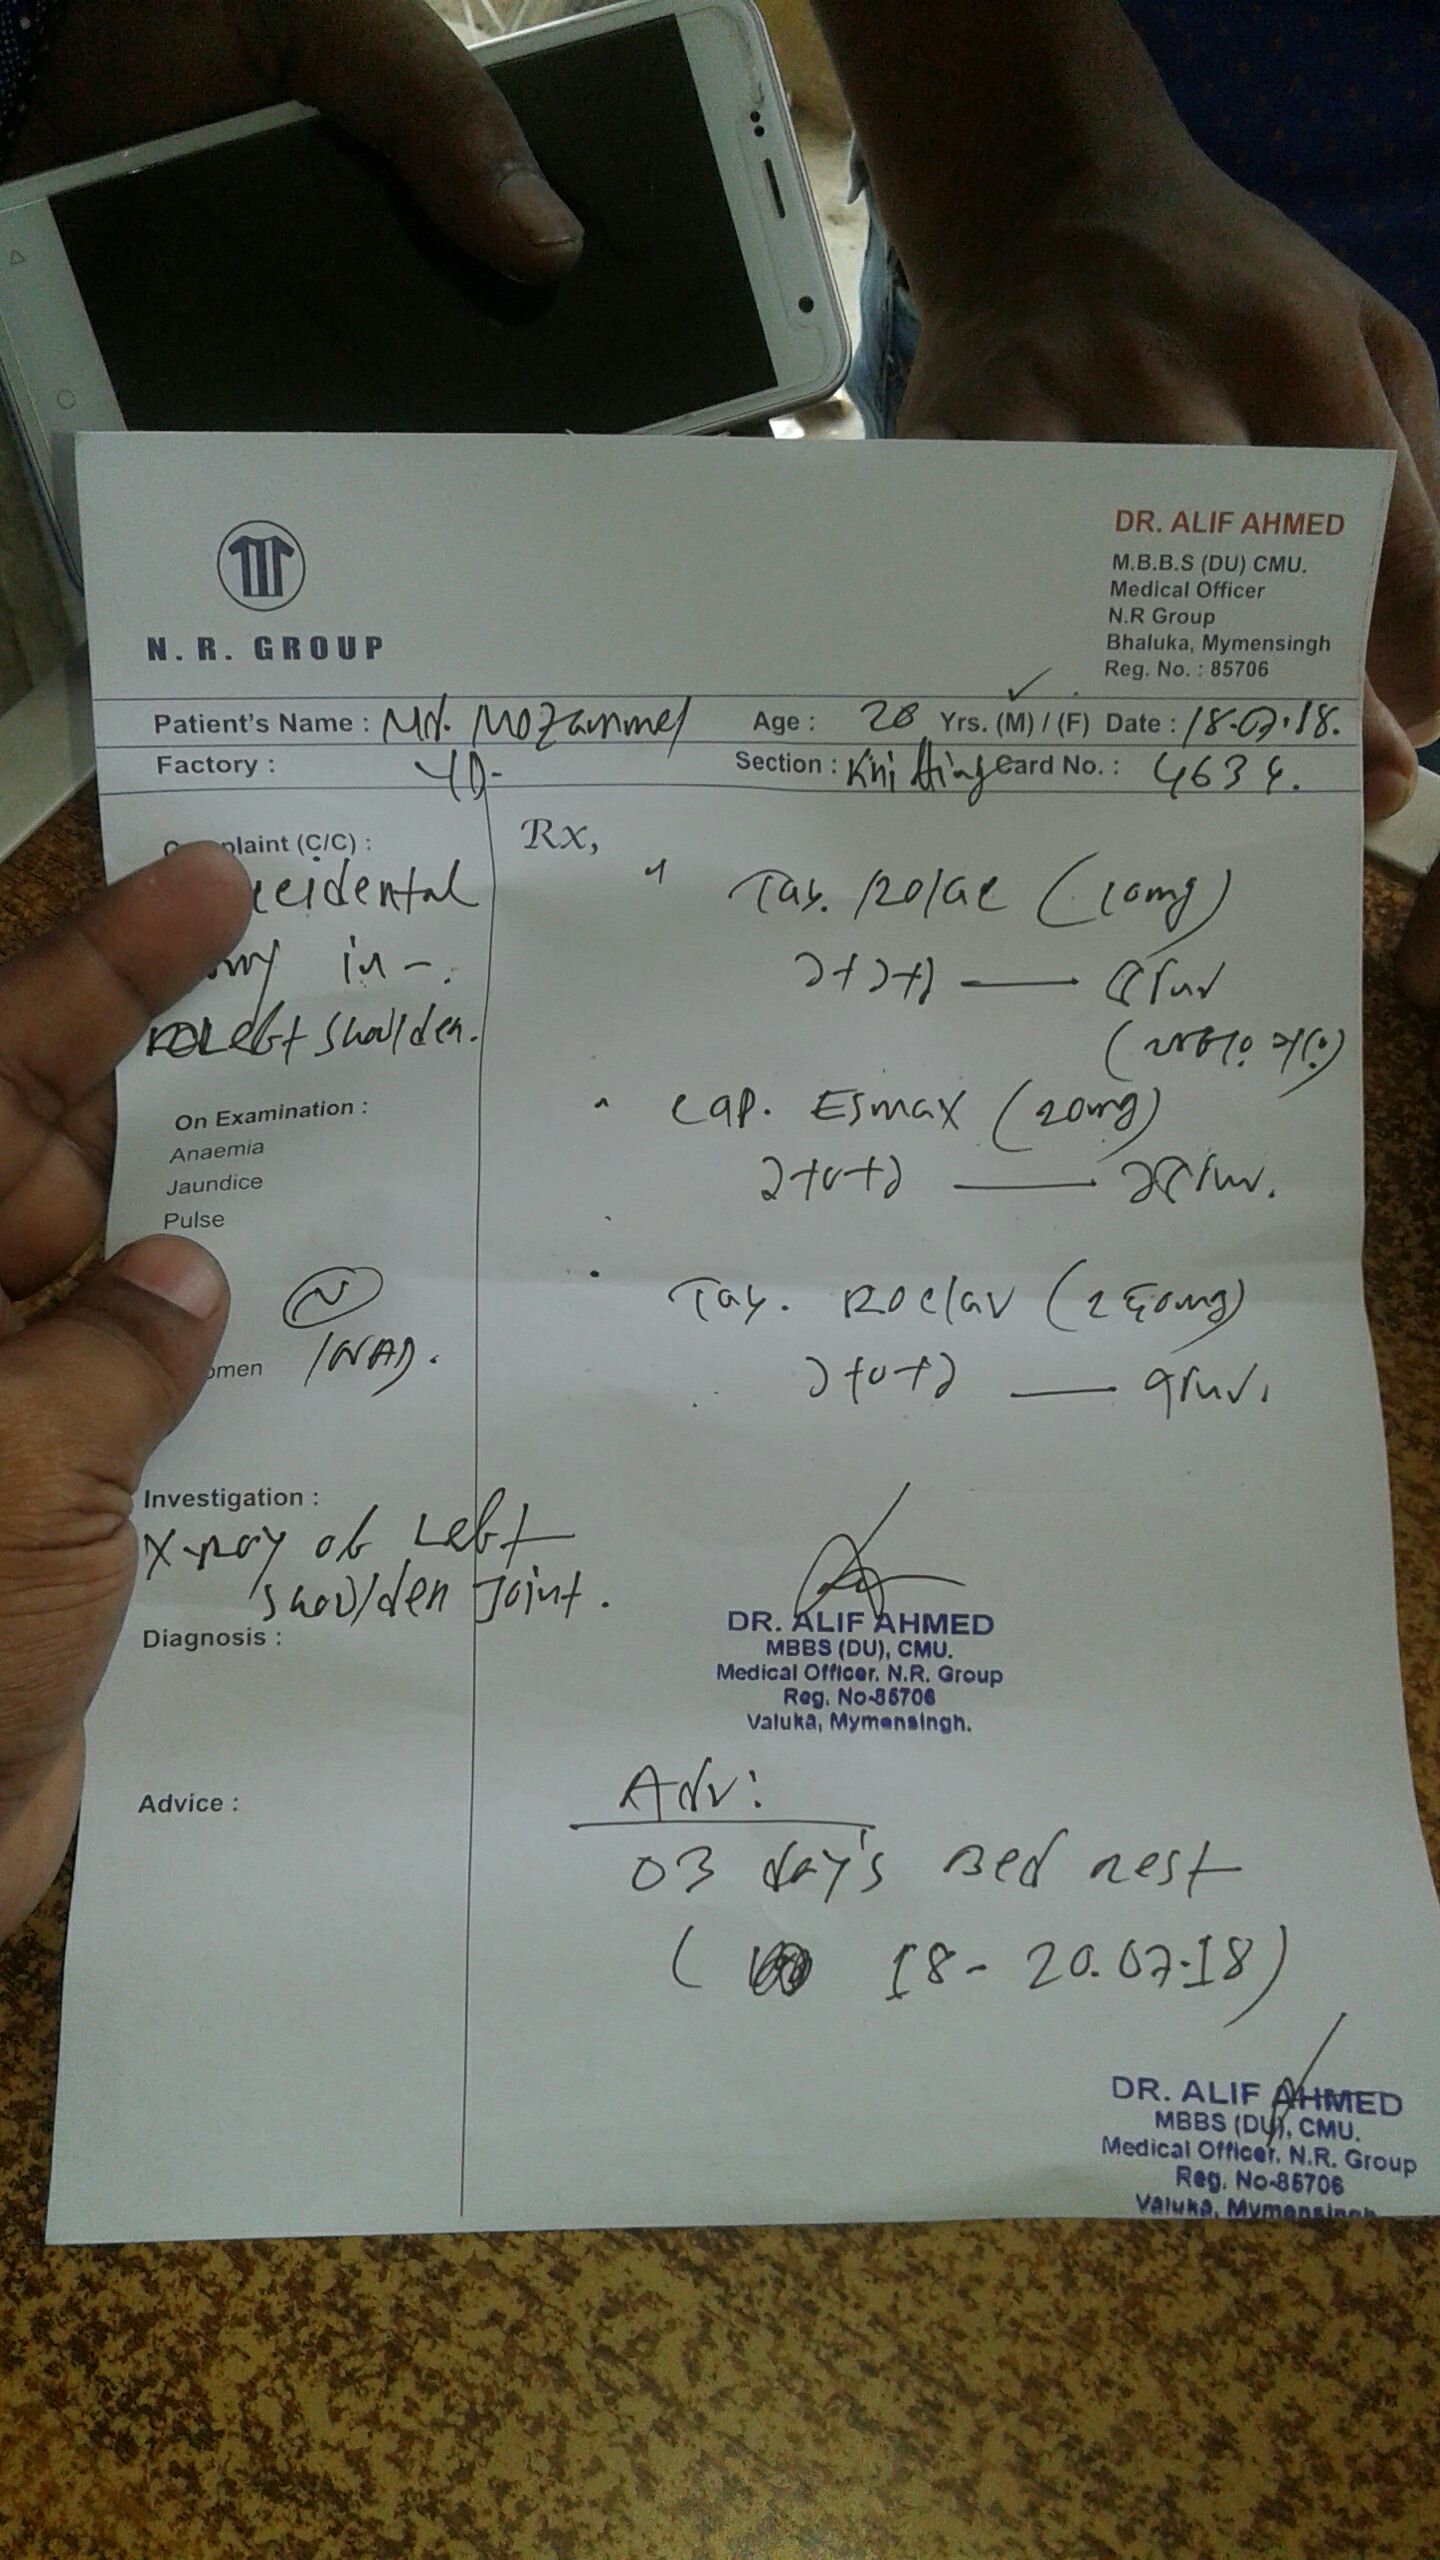 N. R. GROUP
DR. ALIF AHMED
M.B.B.S (DU) CMU.
Medical Officer
N.R Group
Bhaluka, Mymensingh
Reg. No. : 85706
Patient's Name : Mr. Mozammel Age : 28 Yrs. (M) / (F) Date : 18-07-18.
Factory : YD- Section : Knitting Card No. : 4634.
plaint (C/C) :
cidental
in -.
Left Shoulder.
On Examination :
Anaemia
Jaundice
Pulse
N
omen /NAD.
Investigation :
X-ray of Left
Shoulder Joint.
Diagnosis :
Advice :
Rx,
Tab. Rolac (10mg)
১+১+১ — ৫দিন
Cap. Esmax (20mg)
১+০+১ — ১৫দিন.
Tab. Roclav (250mg)
১+০+১ — ৭দিন.
DR. ALIF AHMED
MBBS (DU), CMU.
Medical Officer, N.R. Group
Reg. No-85706
Valuka, Mymensingh.
Adv:
03 day's Bed rest
( 18- 20.07.18)
DR. ALIF AHMED
MBBS (DU), CMU.
Medical Officer, N.R. Group
Reg. No-85706
Valuka, Mymensingh